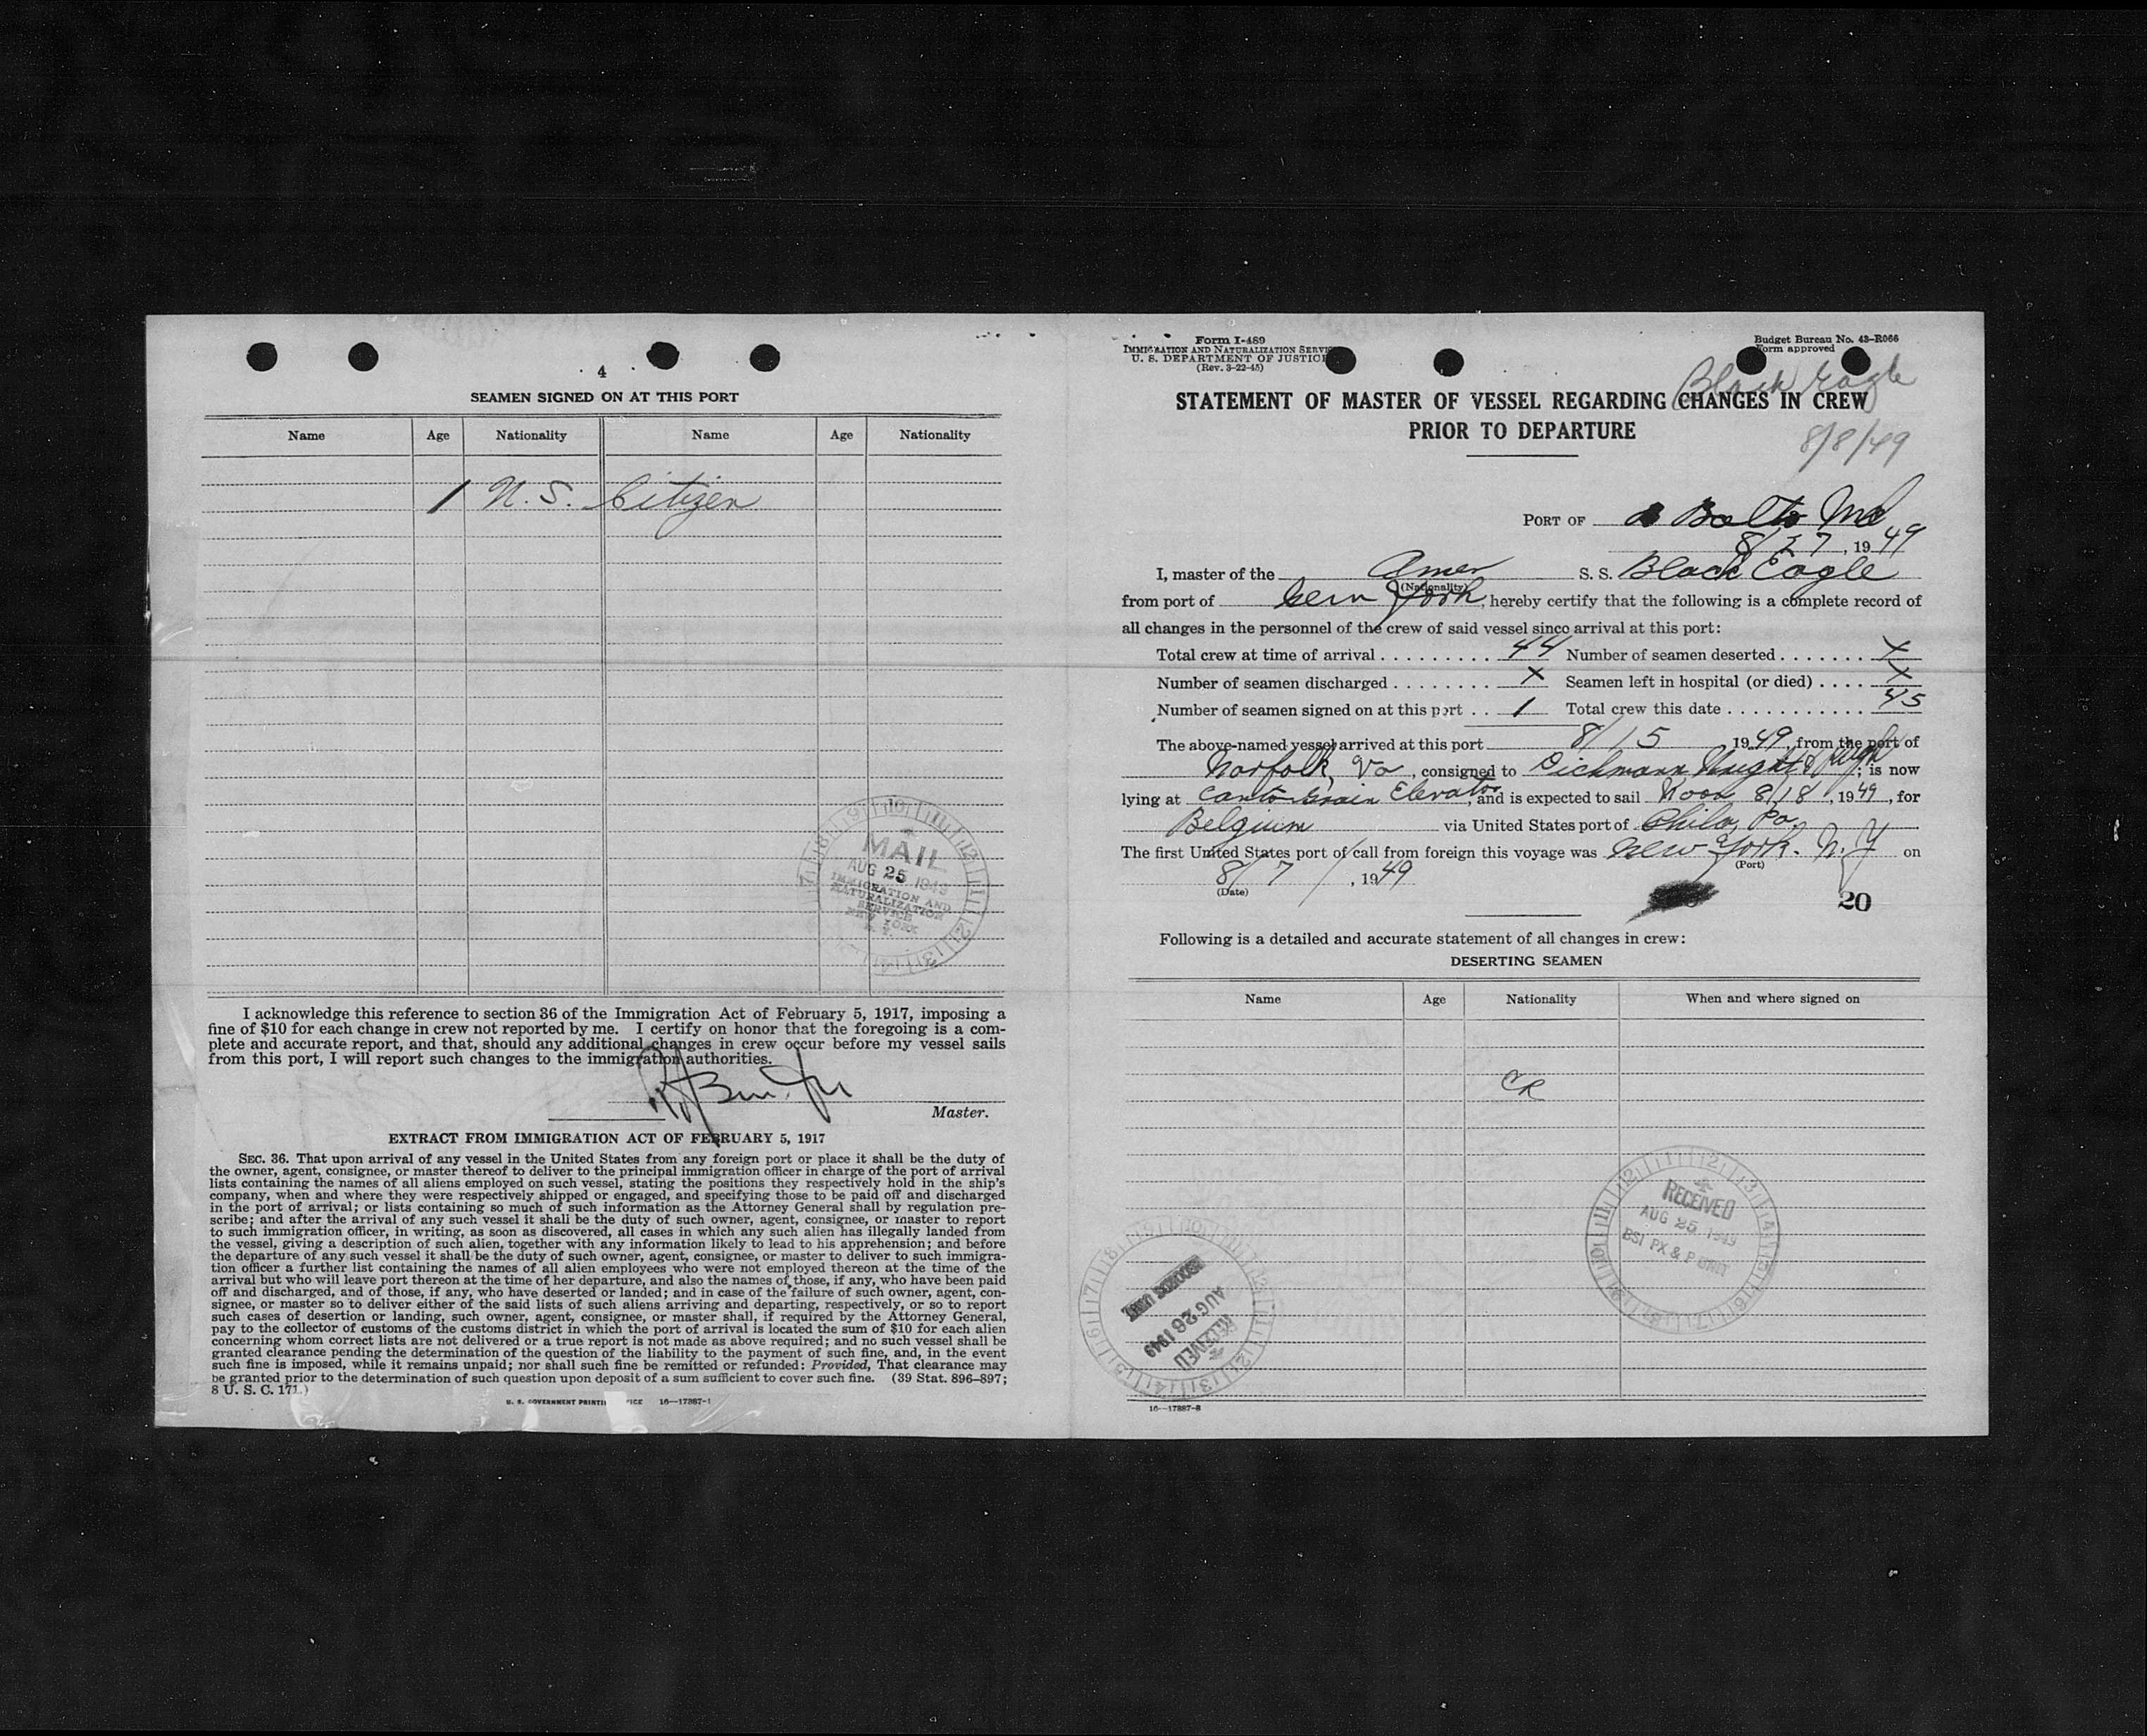 4
SEAMEN SIGNED ON AT THIS PORT
Name Age Nationality Name Age Nationality
1 U.S. Citizen
MAIL
AUG 25 1949
IMMIGRATION AND
NATURALIZATION
SERVICE
NEW YORK
N. Y.
I acknowledge this reference to section 36 of the Immigration Act of February 5, 1917, imposing a
fine of $10 for each change in crew not reported by me. I certify on honor that the foregoing is a com-
plete and accurate report, and that, should any additional changes in crew occur before my vessel sails
from this port, I will report such changes to the immigration authorities.
Master.
EXTRACT FROM IMMIGRATION ACT OF FEBRUARY 5, 1917
SEC. 36. That upon arrival of any vessel in the United States from any foreign port or place it shall be the duty of
the owner, agent, consignee, or master thereof to deliver to the principal immigration officer in charge of the port of arrival
lists containing the names of all aliens employed on such vessel, stating the positions they respectively hold in the ship's
company, when and where they were respectively shipped or engaged, and specifying those to be paid off and discharged
in the port of arrival; or lists containing so much of such information as the Attorney General shall by regulation pre-
scribe; and after the arrival of any such vessel it shall be the duty of such owner, agent, consignee, or master to report
to such immigration officer, in writing, as soon as discovered, all cases in which any such alien has illegally landed from
the vessel, giving a description of such alien, together with any information likely to lead to his apprehension; and before
the departure of any such vessel it shall be the duty of such owner, agent, consignee, or master to deliver to such immigra-
tion officer a further list containing the names of all alien employees who were not employed thereon at the time of the
arrival but who will leave port thereon at the time of her departure, and also the names of those, if any, who have been paid
off and discharged, and of those, if any, who have deserted or landed; and in case of the failure of such owner, agent, con-
signee, or master so to deliver either of the said lists of such aliens arriving and departing, respectively, or so to report
such cases of desertion or landing, such owner, agent, consignee, or master shall, if required by the Attorney General,
pay to the collector of customs of the customs district in which the port of arrival is located the sum of $10 for each alien
concerning whom correct lists are not delivered or a true report is not made as above required; and no such vessel shall be
granted clearance pending the determination of the question of the liability to the payment of such fine, and, in the event
such fine is imposed, while it remains unpaid; nor shall such fine be remitted or refunded: Provided, That clearance may
be granted prior to the determination of such question upon deposit of a sum sufficient to cover such fine. (39 Stat. 896–897;
8 U. S. C. 171.)
U. S. GOVERNMENT PRINTI ICE 16—17887-1
Form I-489
IMMIGRATION AND NATURALIZATION SERVI
U. S. DEPARTMENT OF JUSTIC
(Rev. 3-22-45)
Budget Bureau No. 43–R066
Form approved
Black Eagle
STATEMENT OF MASTER OF VESSEL REGARDING CHANGES IN CREW
PRIOR TO DEPARTURE
8/8/49
PORT OF Balto Md
8/ 7, 1949
I, master of the Amer S. S. Black Eagle
(Nationality)
from port of York, hereby certify that the following is a complete record of
all changes in the personnel of the crew of said vessel since arrival at this port:
Total crew at time of arrival . . . . . . . . . 44 Number of seamen deserted . . . . . . . X
Number of seamen discharged . . . . . . . . X Seamen left in hospital (or died) . . . . X
Number of seamen signed on at this port . . 1 Total crew this date . . . . . . . . . . . 45
The above-named vessel arrived at this port 8/15 1949, from the port of
Norfolk, Va, consigned to Dichmann, Wright & Pugh; is now
lying at Canto Grain Elevator, and is expected to sail Noon 8/18, 1949, for
Belgium via United States port of Phila, Pa.
The first United States port of call from foreign this voyage was New York. N.Y on
(Port)
8/7/, 1949
(Date)
20
Following is a detailed and accurate statement of all changes in crew:
DESERTING SEAMEN
Name Age Nationality When and where signed on
CR
RECEIVED
AUG 25 1949
BSI PX & P UNIT
RECORDS UNIT
AUG 26 1949
RECEIVED
16—17887-3